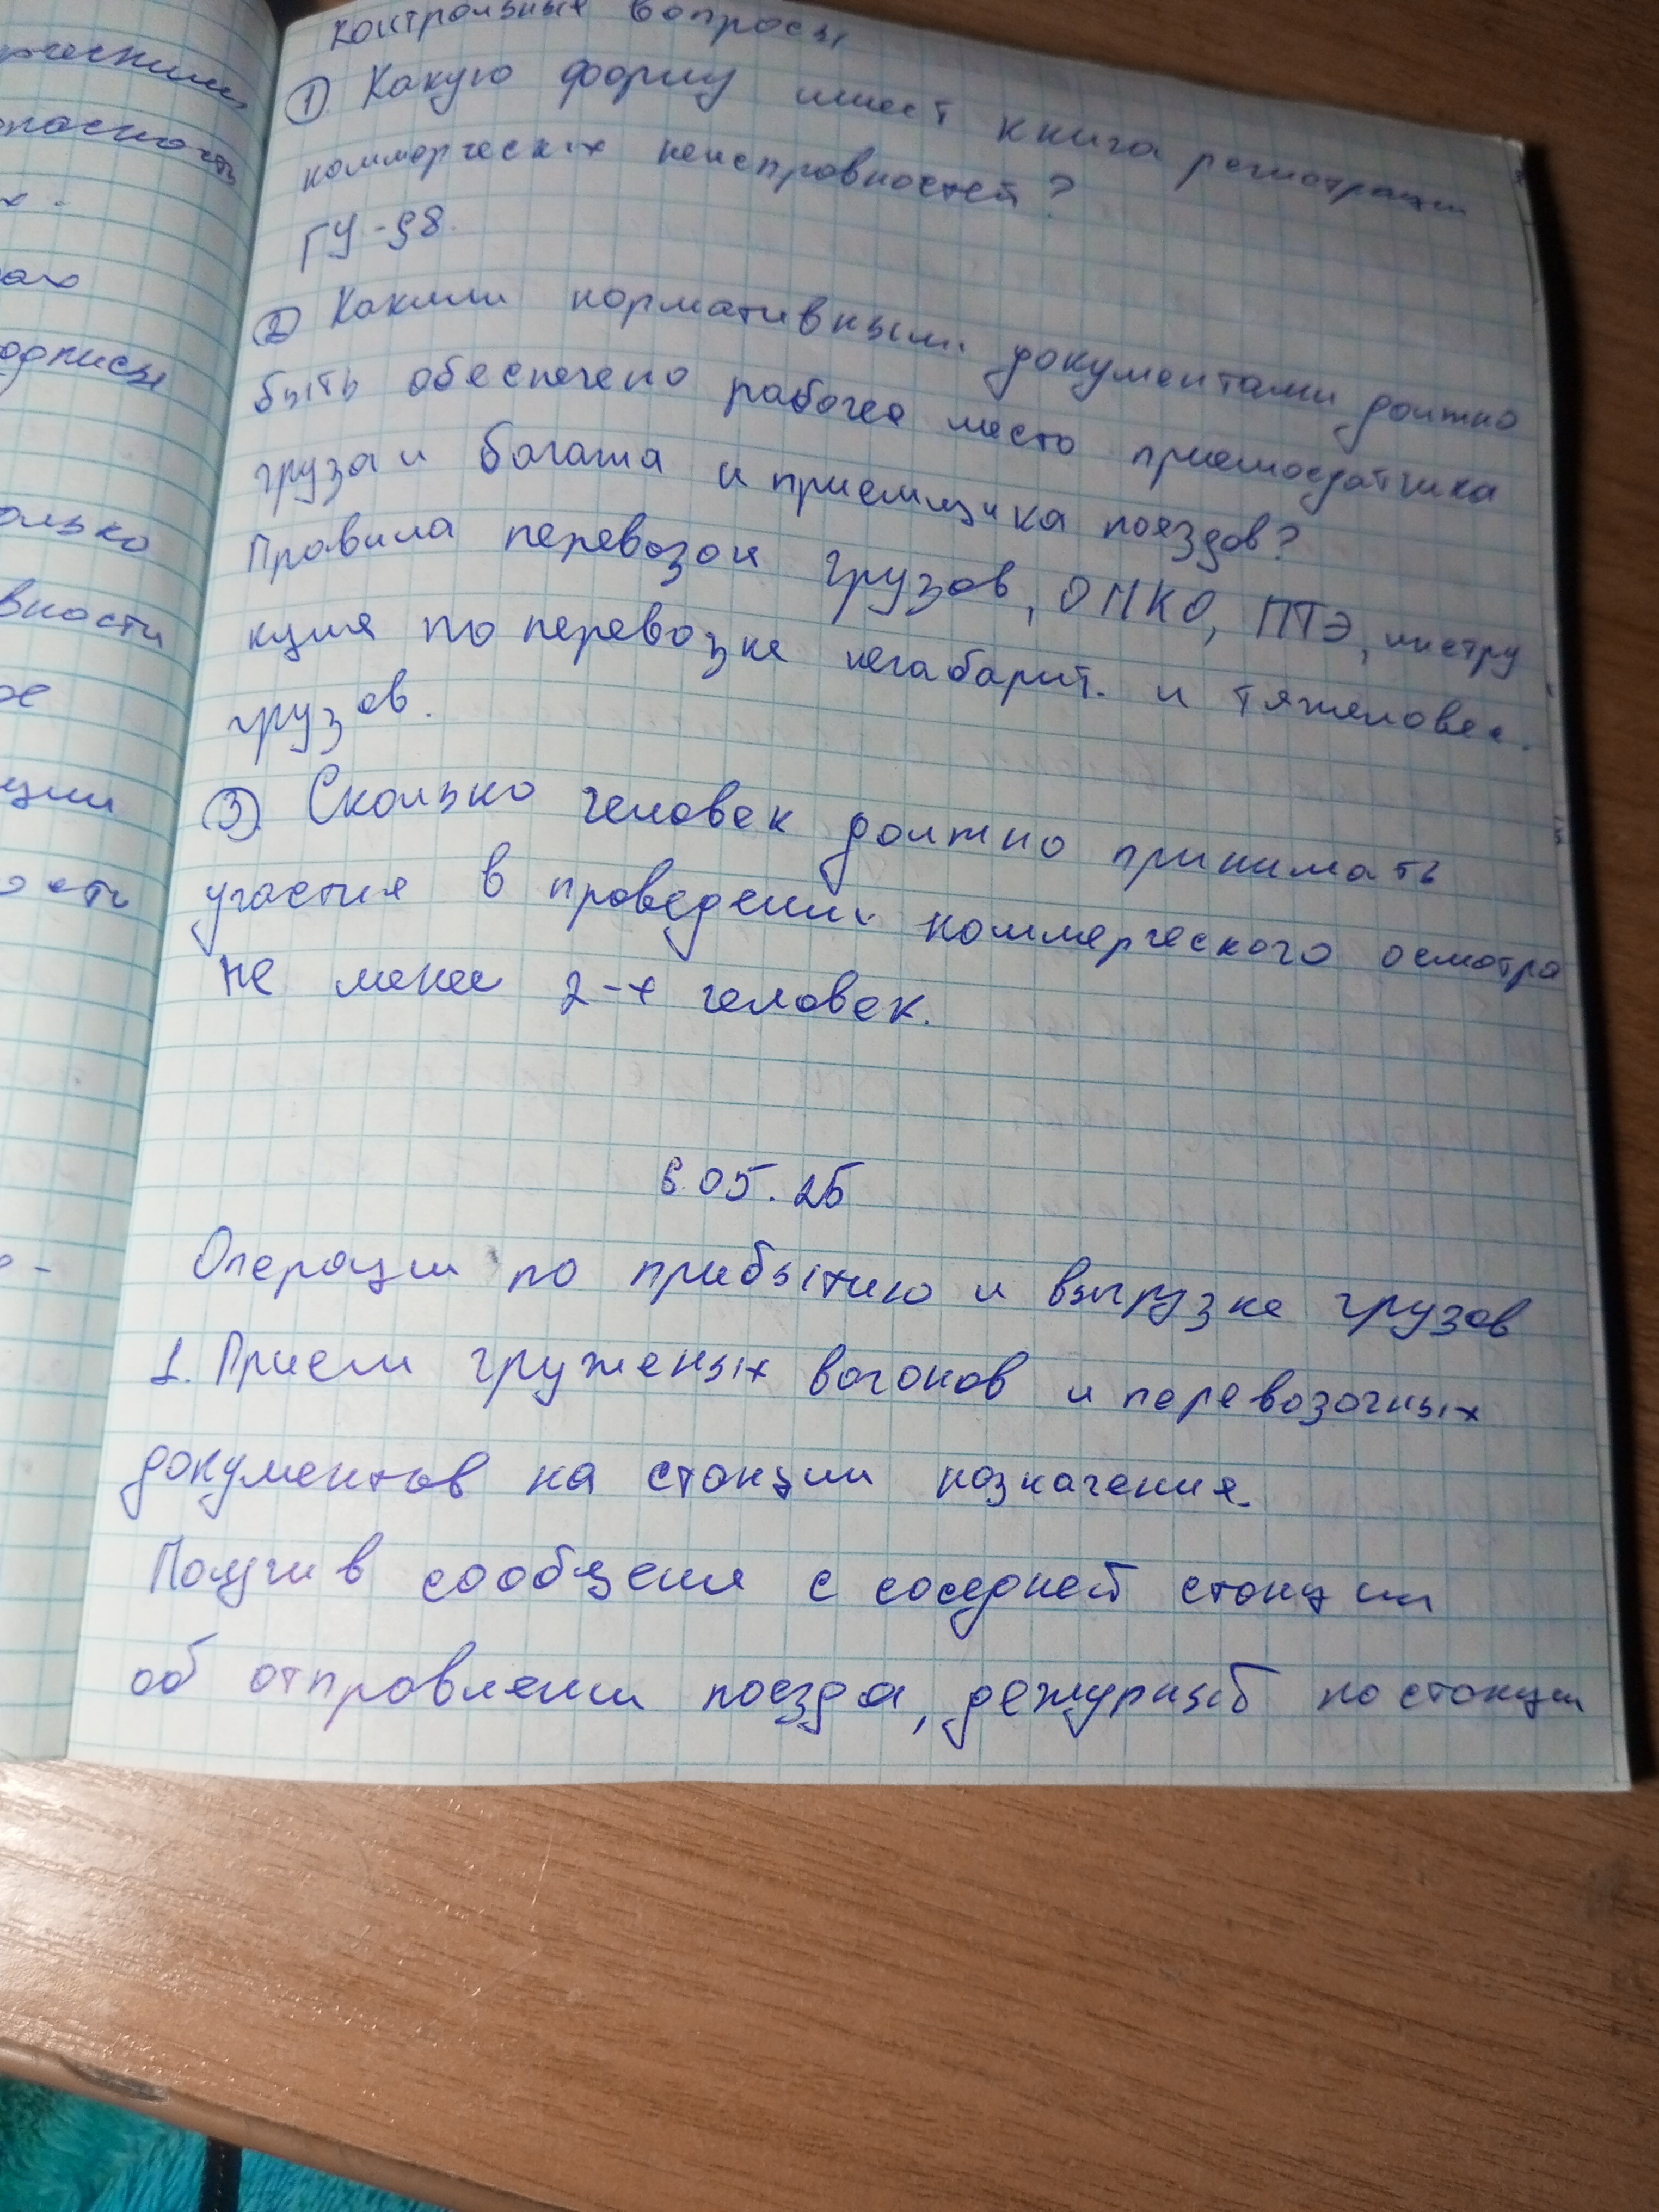 рческими
пасность
х.
ах
одписы
олько
вности
ое
ции
ость
о-
контрольные вопросы
① Какую форму имеет книга регистрации
коммерческих неисправностей?
ГУ-98.
② Какими нормативными документами должно
быть обеспечено рабочее место приемосдатчика
груза и багажа и приемщика поездов?
Правила перевозок грузов, ОПКО, ПТЭ, инстру
кция по перевозке негабарит. и тяжеловес.
грузов.
③ Сколько человек должно принимать
участие в проведении коммерческого осмотра
не менее 2-х человек.
6.05.26
Операции по прибытию и выгрузке грузов
1. Прием груженых вагонов и перевозочных
документов на станции назначения.
Получив сообщение с соседней станции
об отправлении поезда, дежурный по станции